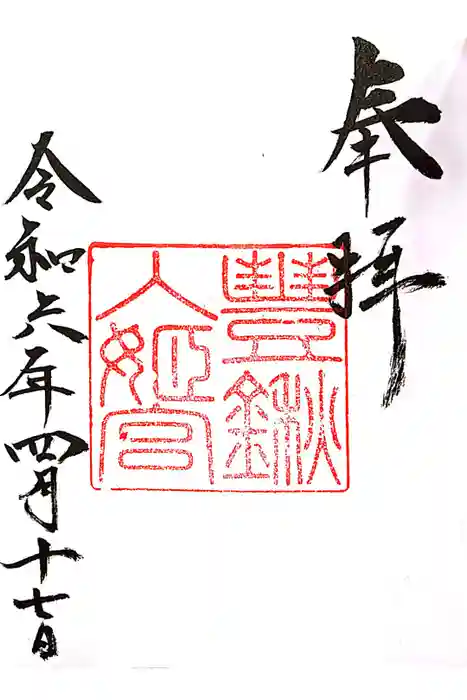 奉拝
豊鍬
入姫宮
令和六年四月十七日